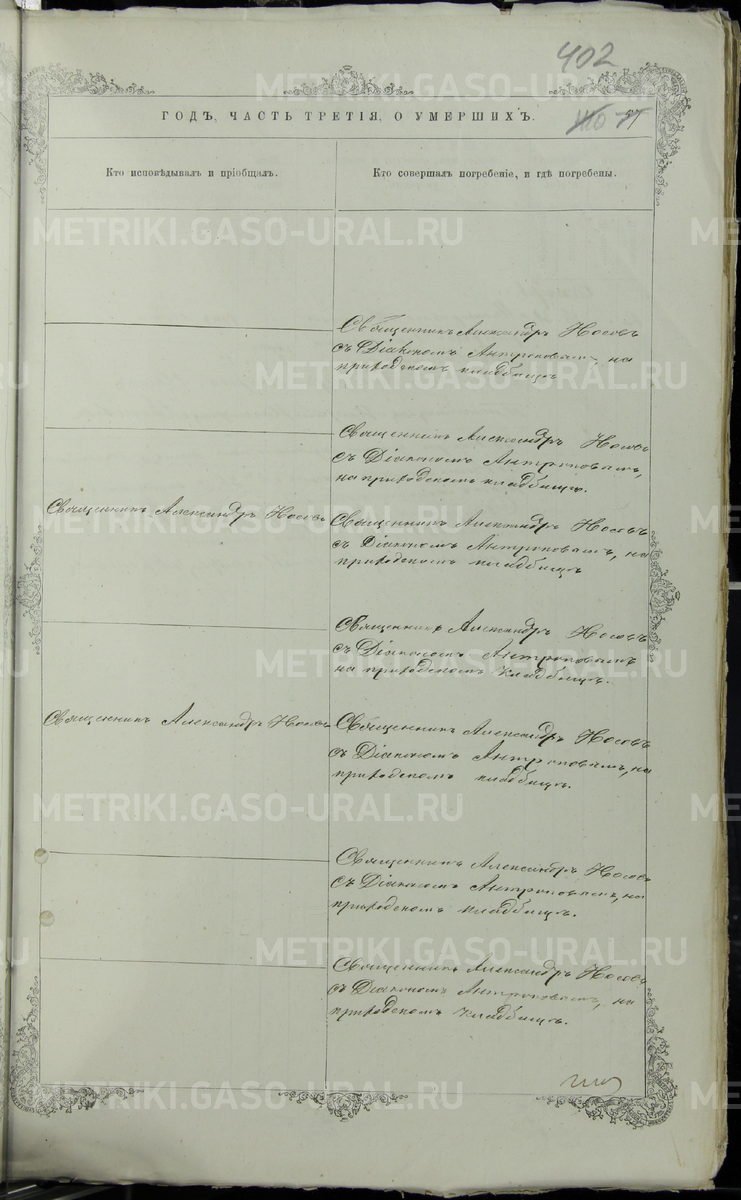 402
ГОДЪ, ЧАСТЬ ТРЕТІЯ, О УМЕРШИХЪ.
Кто исповѣдывалъ и пріобщалъ.
Кто совершалъ погребеніе, и гдѣ погребены.
Священникъ Александръ Носовъ
съ Діакономъ Антроповымъ, на
приходскомъ кладбищѣ
Священникъ Александръ Носовъ
съ Діакономъ Антроповымъ,
на приходскомъ кладбищѣ.
Священникъ Александръ Носовъ
Священникъ Александръ Носовъ
съ Діакономъ Антроповымъ, на
приходскомъ кладбищѣ
Священникъ Александръ Носовъ
съ Діакономъ Антроповымъ
на приходскомъ кладбищѣ.
Священникъ Александръ Носовъ
Священникъ Александръ Носовъ
съ Діакономъ Антроповымъ, на
приходскомъ кладбищѣ.
Священникъ Александръ Носовъ
съ Діакономъ Антроповымъ, на
приходскомъ кладбищѣ.
Священникъ Александръ Носовъ
съ Діакономъ Антроповымъ, на
приходскомъ кладбищѣ.
METRIKI.GASO-URAL.RU